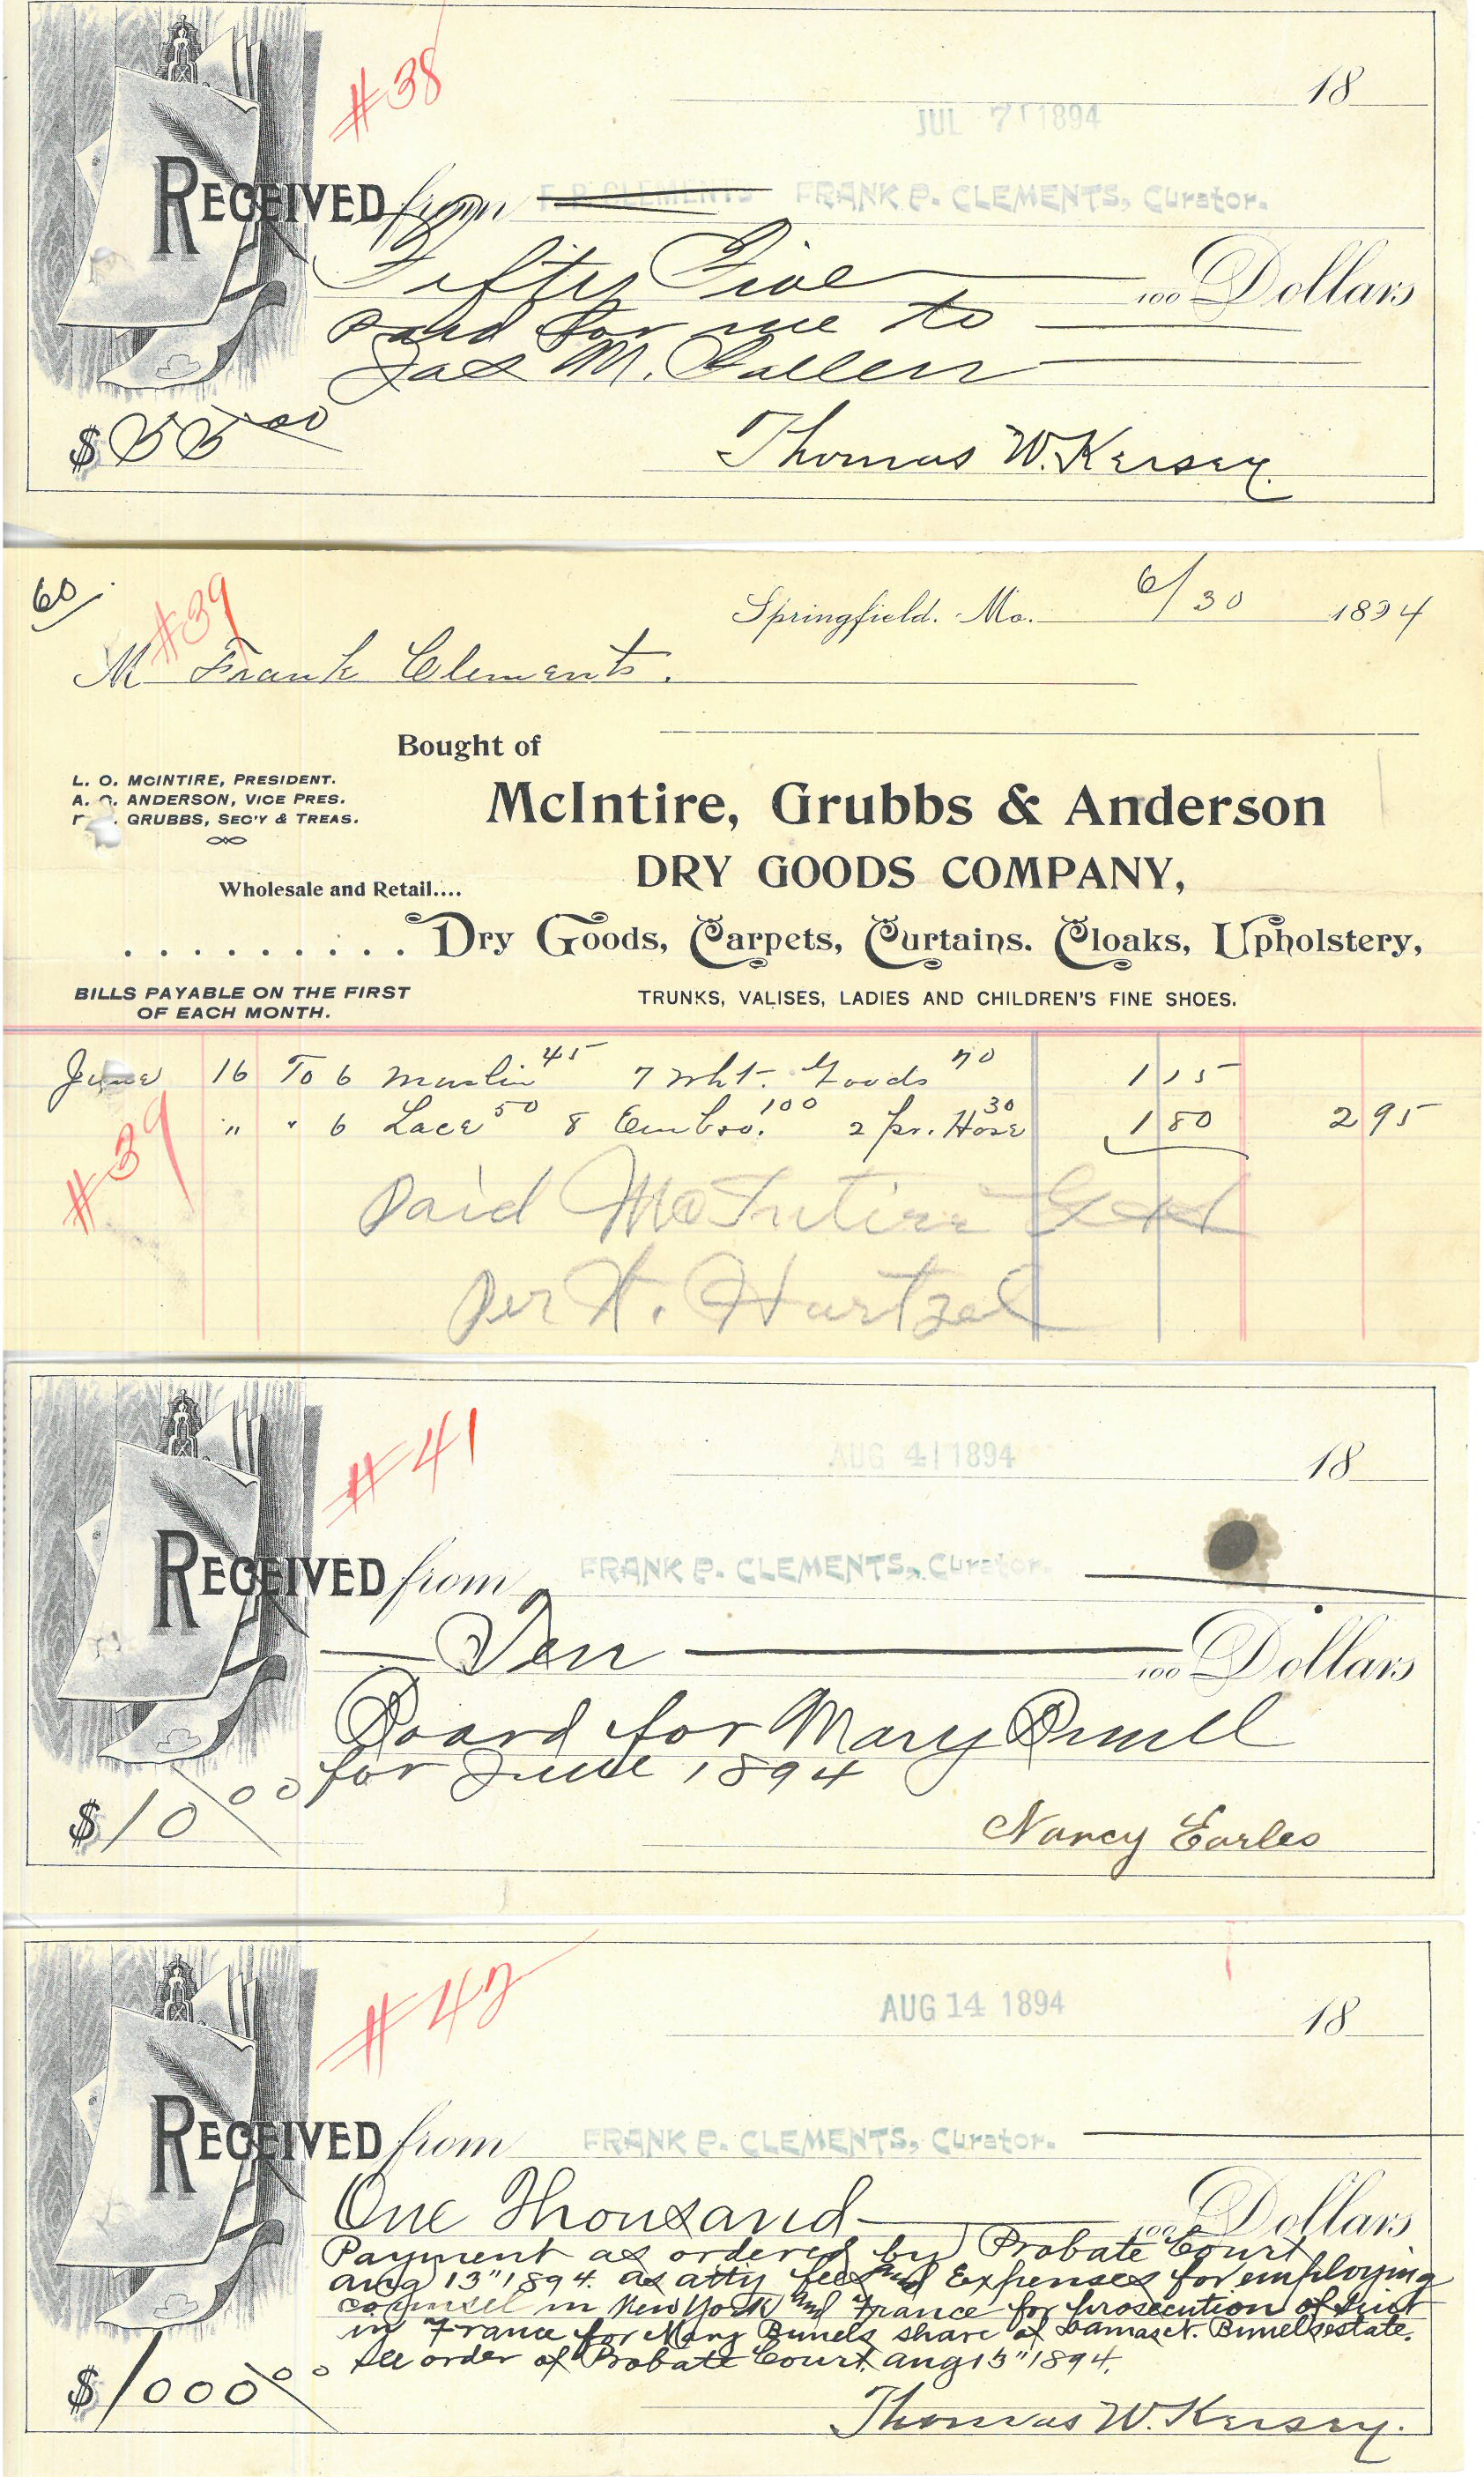 #38
18
JUL 7 1894
RECEIVED from F. P. CLEMENTS FRANK P. CLEMENTS, Curator.
Fifty Five 100 Dollars
paid for me to
Jas M.
$55 00
Thomas W. Kersey.
60/
#39
Springfield. Mo. 6/30 1894
M Frank Clements.
Bought of
L. O. MCINTIRE, PRESIDENT.
A. O. ANDERSON, VICE PRES.
GRUBBS, SEC'Y & TREAS.
McIntire, Grubbs & Anderson
DRY GOODS COMPANY,
Wholesale and Retail....
.......... Dry Goods, Carpets, Curtains. Cloaks, Upholstery,
BILLS PAYABLE ON THE FIRST
OF EACH MONTH.
TRUNKS, VALISES, LADIES AND CHILDREN'S FINE SHOES.
June 16 To 6 muslin 45 7 Wht. Goods 70 1 15
" " 6 Lace 50 8 Embro. 100 2 pr. Hose 30 1 80 2 95
#39
Paid McIntire G &
Per H. Hartzel
#41
AUG 4 1894
18
RECEIVED from FRANK P. CLEMENTS, Curator.
Ten 100 Dollars
Board for Mary Bunell
for June 1894
$10/00
Nancy Earles
#42
AUG 14 1894
18
RECEIVED from FRANK P. CLEMENTS, Curator.
One Thousand 100 Dollars
Payment as ordered by Probate Court
Aug 13" 1894. as atty fees and Expenses for employing
counsel in New York and France for prosecution of suit
in France for Mary Bunels share of Damas N. Bunells estate.
see order of Probate Court Aug 13" 1894.
$1000/00
Thomas W. Kersey.